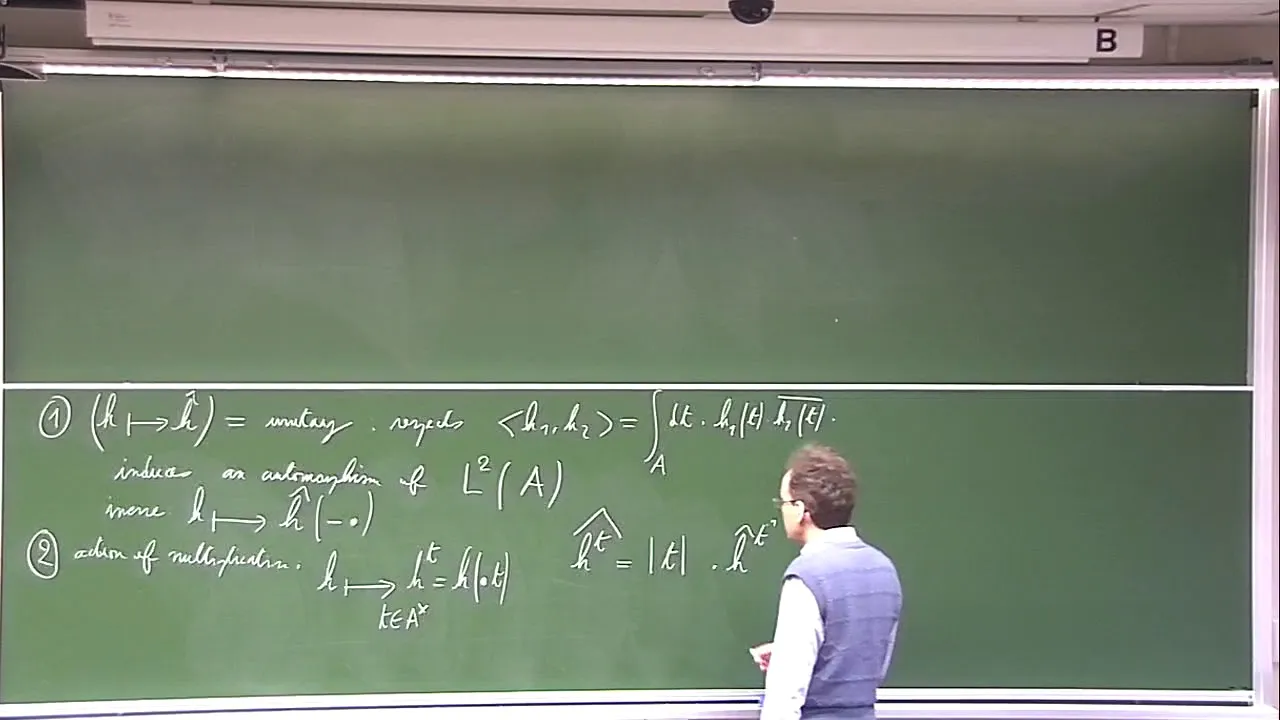 B
① (h ⟼ ĥ) = unitary . respects <h₁, h₂> = ∫_A dt . h₁(t) . \overline{h₂(t)} .
induces an automorphism of L²(A)
inverse h ⟼ ĥ(-•)
② action of multiplication . h ⟼ hᵗ = h(•t) \widehat{hᵗ} = |t| . ĥ^{t^{-1}}
t∈A^×